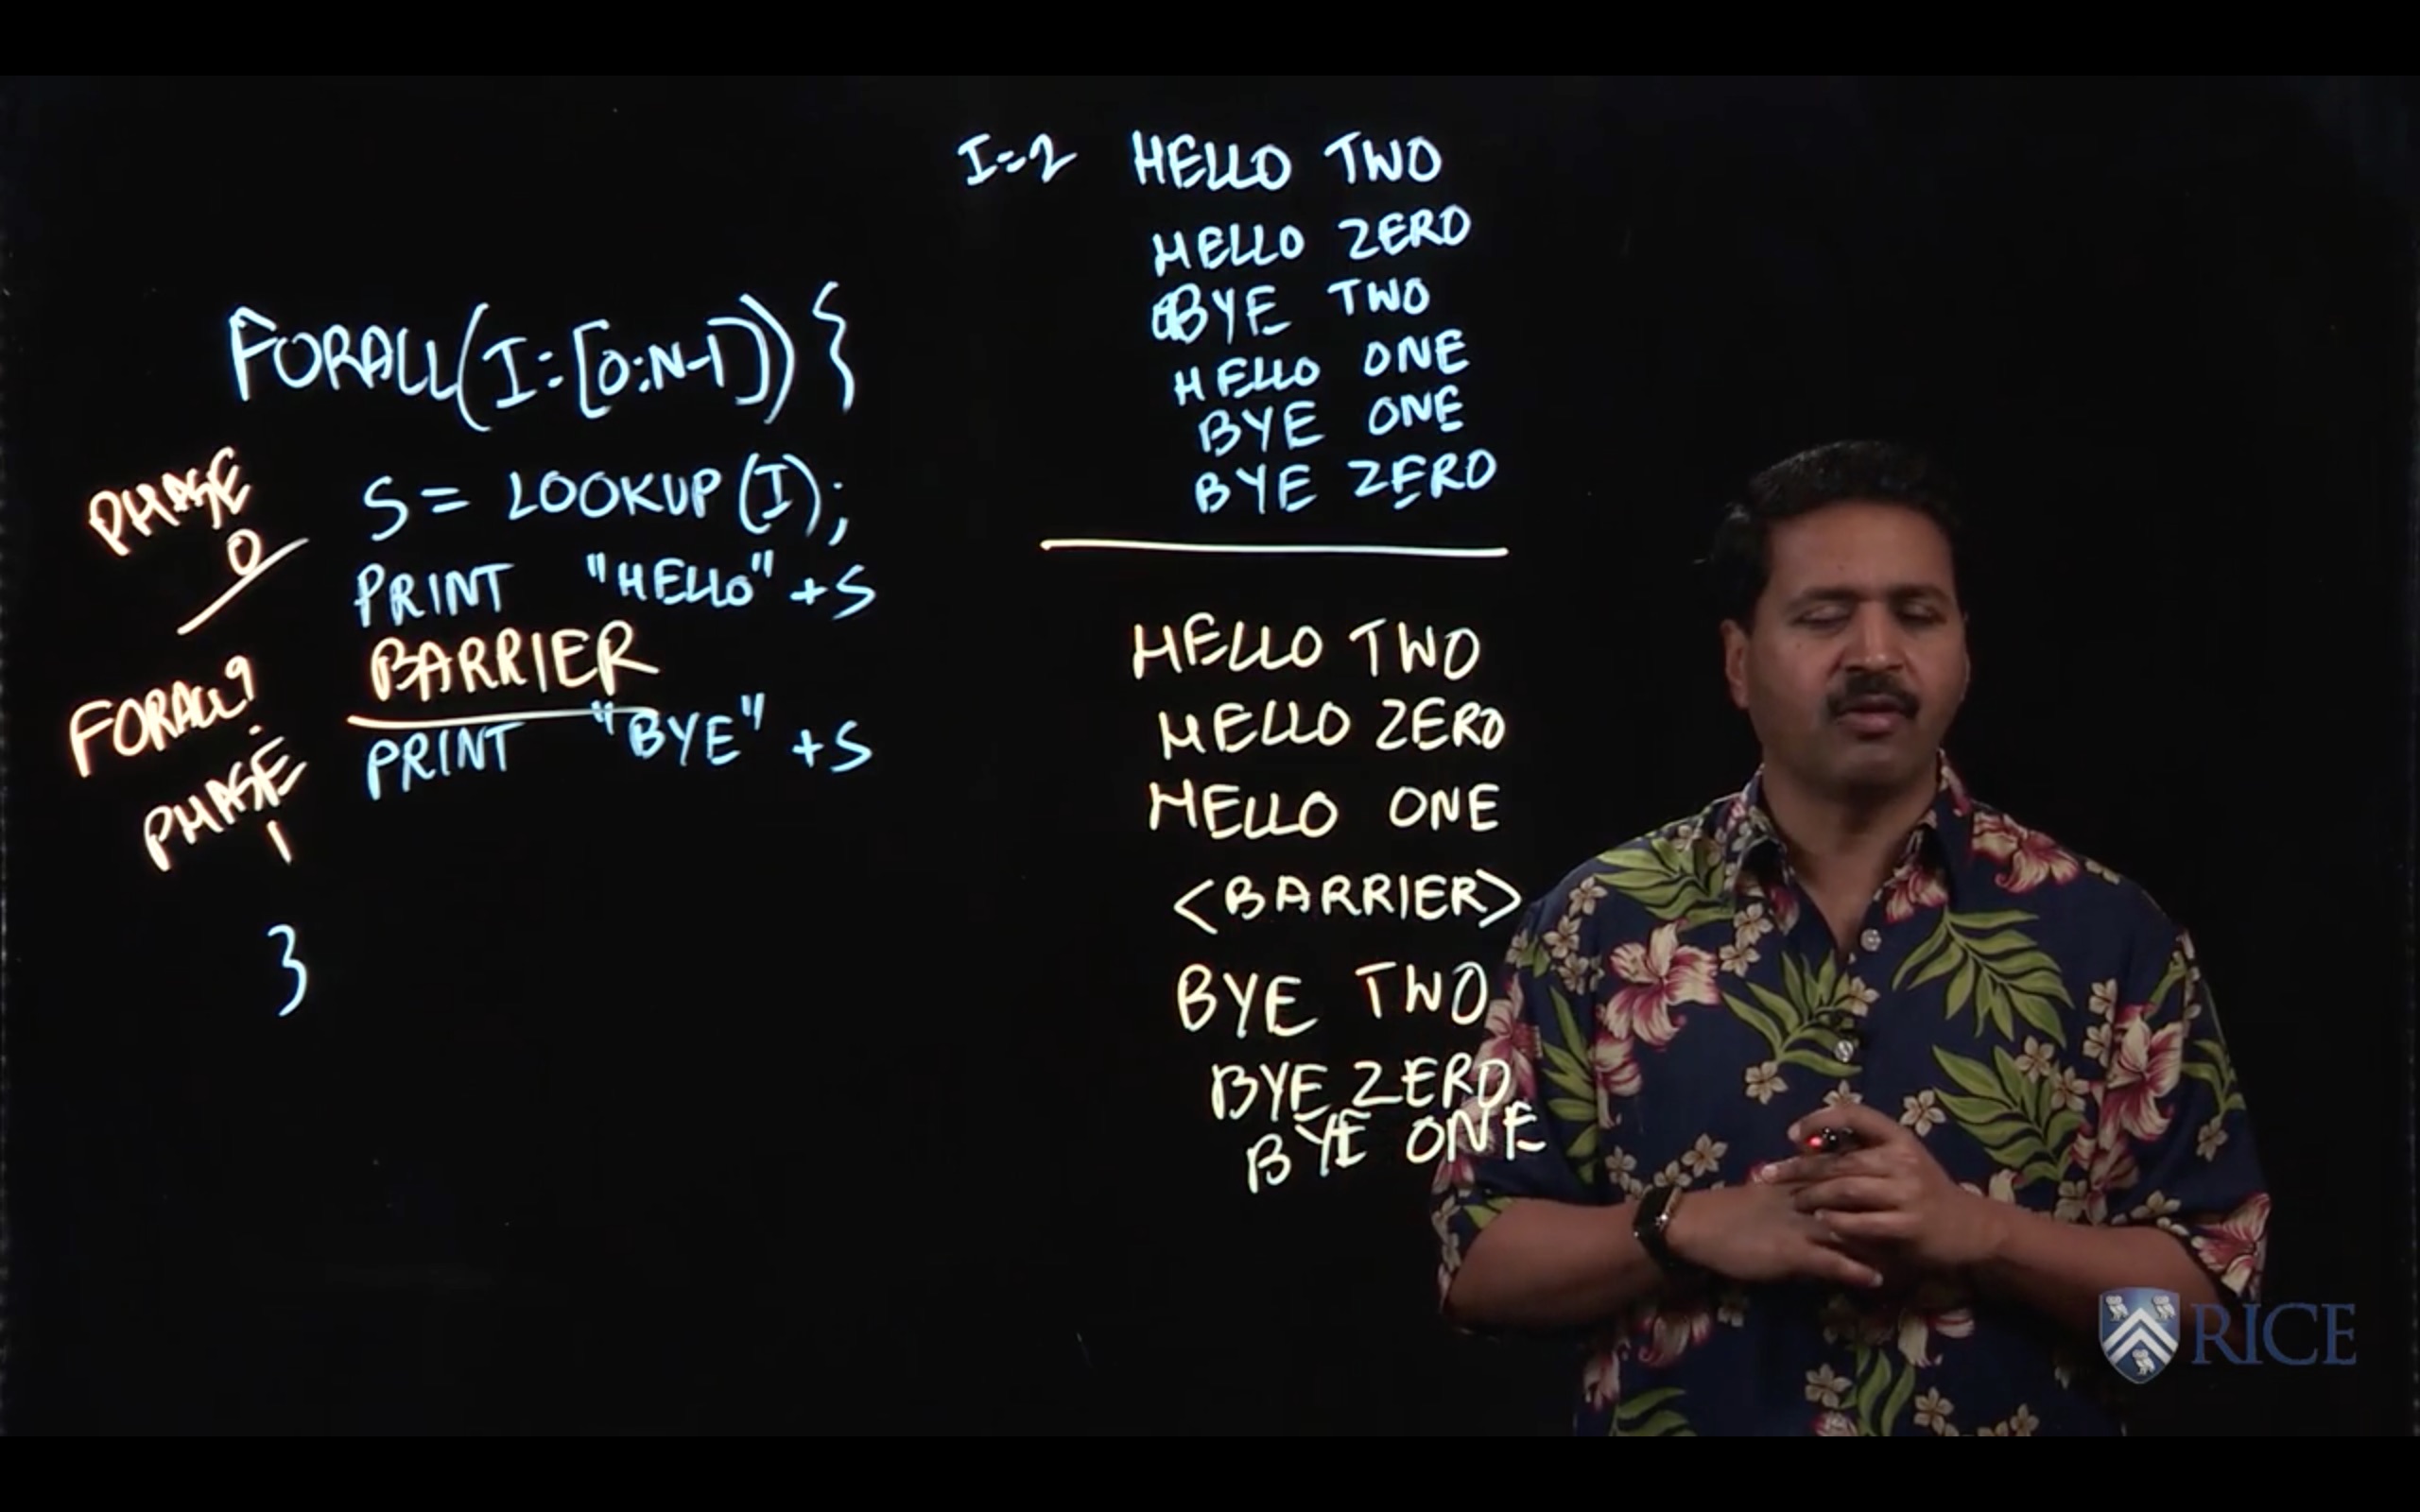 FORALL(I:[0:N-1]) {
PHASE
0
S = LOOKUP(I);
PRINT "HELLO" + S
BARRIER
FORALL?
PRINT "BYE" + S
PHASE
1
}
I=2 HELLO TWO
HELLO ZERO
BYE TWO
HELLO ONE
BYE ONE
BYE ZERO
HELLO TWO
HELLO ZERO
HELLO ONE
<BARRIER>
BYE TWO
BYE ZERO
BYE ONE
RICE